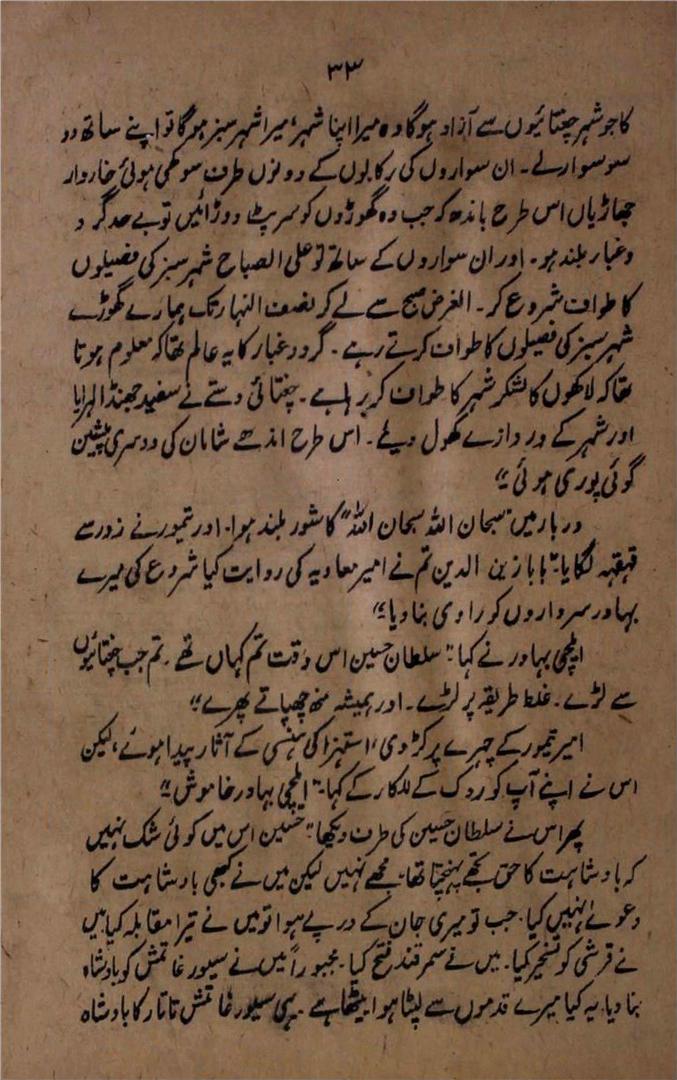 ۳۳
کا جو شہر چغتائیوں سے آزاد ہوگا وہ میرا اپنا شہر، میرا شہر سبز ہوگا تو اپنے ساتھ دو
سو سوار لے۔ ان سواروں کی رکابوں کے دونوں طرف سوکھی ہوئی خاردار
جھاڑیاں اس طرح باندھ کہ جب وہ گھوڑوں کو سرپٹ دوڑائیں تو بے حد گرد
و غبار بلند ہو۔ اور ان سواروں کے ساتھ تو علی الصباح شہر سبز کی فصیلوں
کا طواف شروع کر۔ الغرض صبح سے لے کر نصف النہار تک ہمارے گھوڑے
شہر سبز کی فصیلوں کا طواف کرتے رہے۔ گرد و غبار کا یہ عالم تھا کہ معلوم ہوتا
تھا کہ لاکھوں کا لشکر شہر کا طواف کر رہا ہے۔ چغتائی دستے نے سفید جھنڈا لہرایا
اور شہر کے دروازے کھول دیئے۔ اس طرح اندھے شامان کی دوسری پیشین
گوئی پوری ہوئی۔"
دربار میں "سبحان اللہ سبحان اللہ" کا شور بلند ہوا۔ اور تیمور نے زور سے
قہقہہ لگایا۔ "بابا زین الدین تم نے امیر معاویہ کی روایت کیا شروع کی میرے
بہادر سرداروں کو راوی بنا دیا۔"
ایلچی بہادر نے کہا۔ "سلطان حسین اس وقت تم کہاں تھے۔ تم جب چغتائیوں
سے لڑے۔ غلط طریقہ پر لڑے۔ اور ہمیشہ منہ چھپاتے پھرے۔"
امیر تیمور کے چہرے پر کڑوی، استہزا کی ہنسی کے آثار پیدا ہوئے، لیکن
اس نے اپنے آپ کو روک کے للکار کے کہا۔ "ایلچی بہادر خاموش۔"
پھر اس نے سلطان حسین کی طرف دیکھا۔ "حسین اس میں کوئی شک نہیں
کہ بادشاہت کا حق تجھے پہنچتا تھا۔ مجھے نہیں لیکن میں نے کبھی بادشاہت کا
دعویٰ نہیں کیا۔ جب تو میری جان کے درپے ہوا تو میں نے تیرا مقابلہ کیا۔ میں
نے قرشی کو تسخیر کیا۔ میں نے سمرقند فتح کیا۔ مجبوراً میں نے سیورغاتمش کو بادشاہ
بنا دیا۔ یہ کیا میرے قدموں سے لپٹا ہوا بیٹھا ہے۔ یہی سیورغاتمش تاتار کا بادشاہ